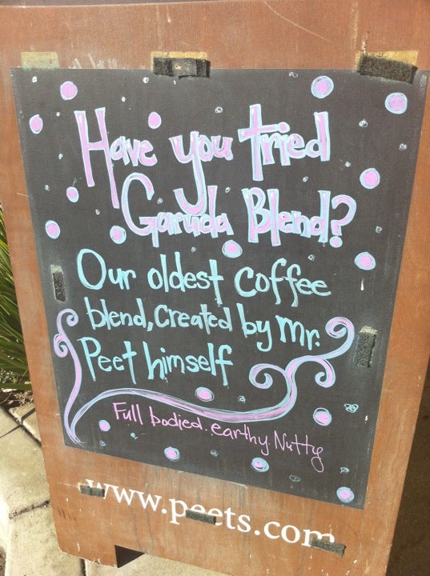 Have you tried
Garuda Blend?
Our oldest coffee
blend, created by mr.
Peet himself
Full bodied. earthy. Nutty
www.peets.com